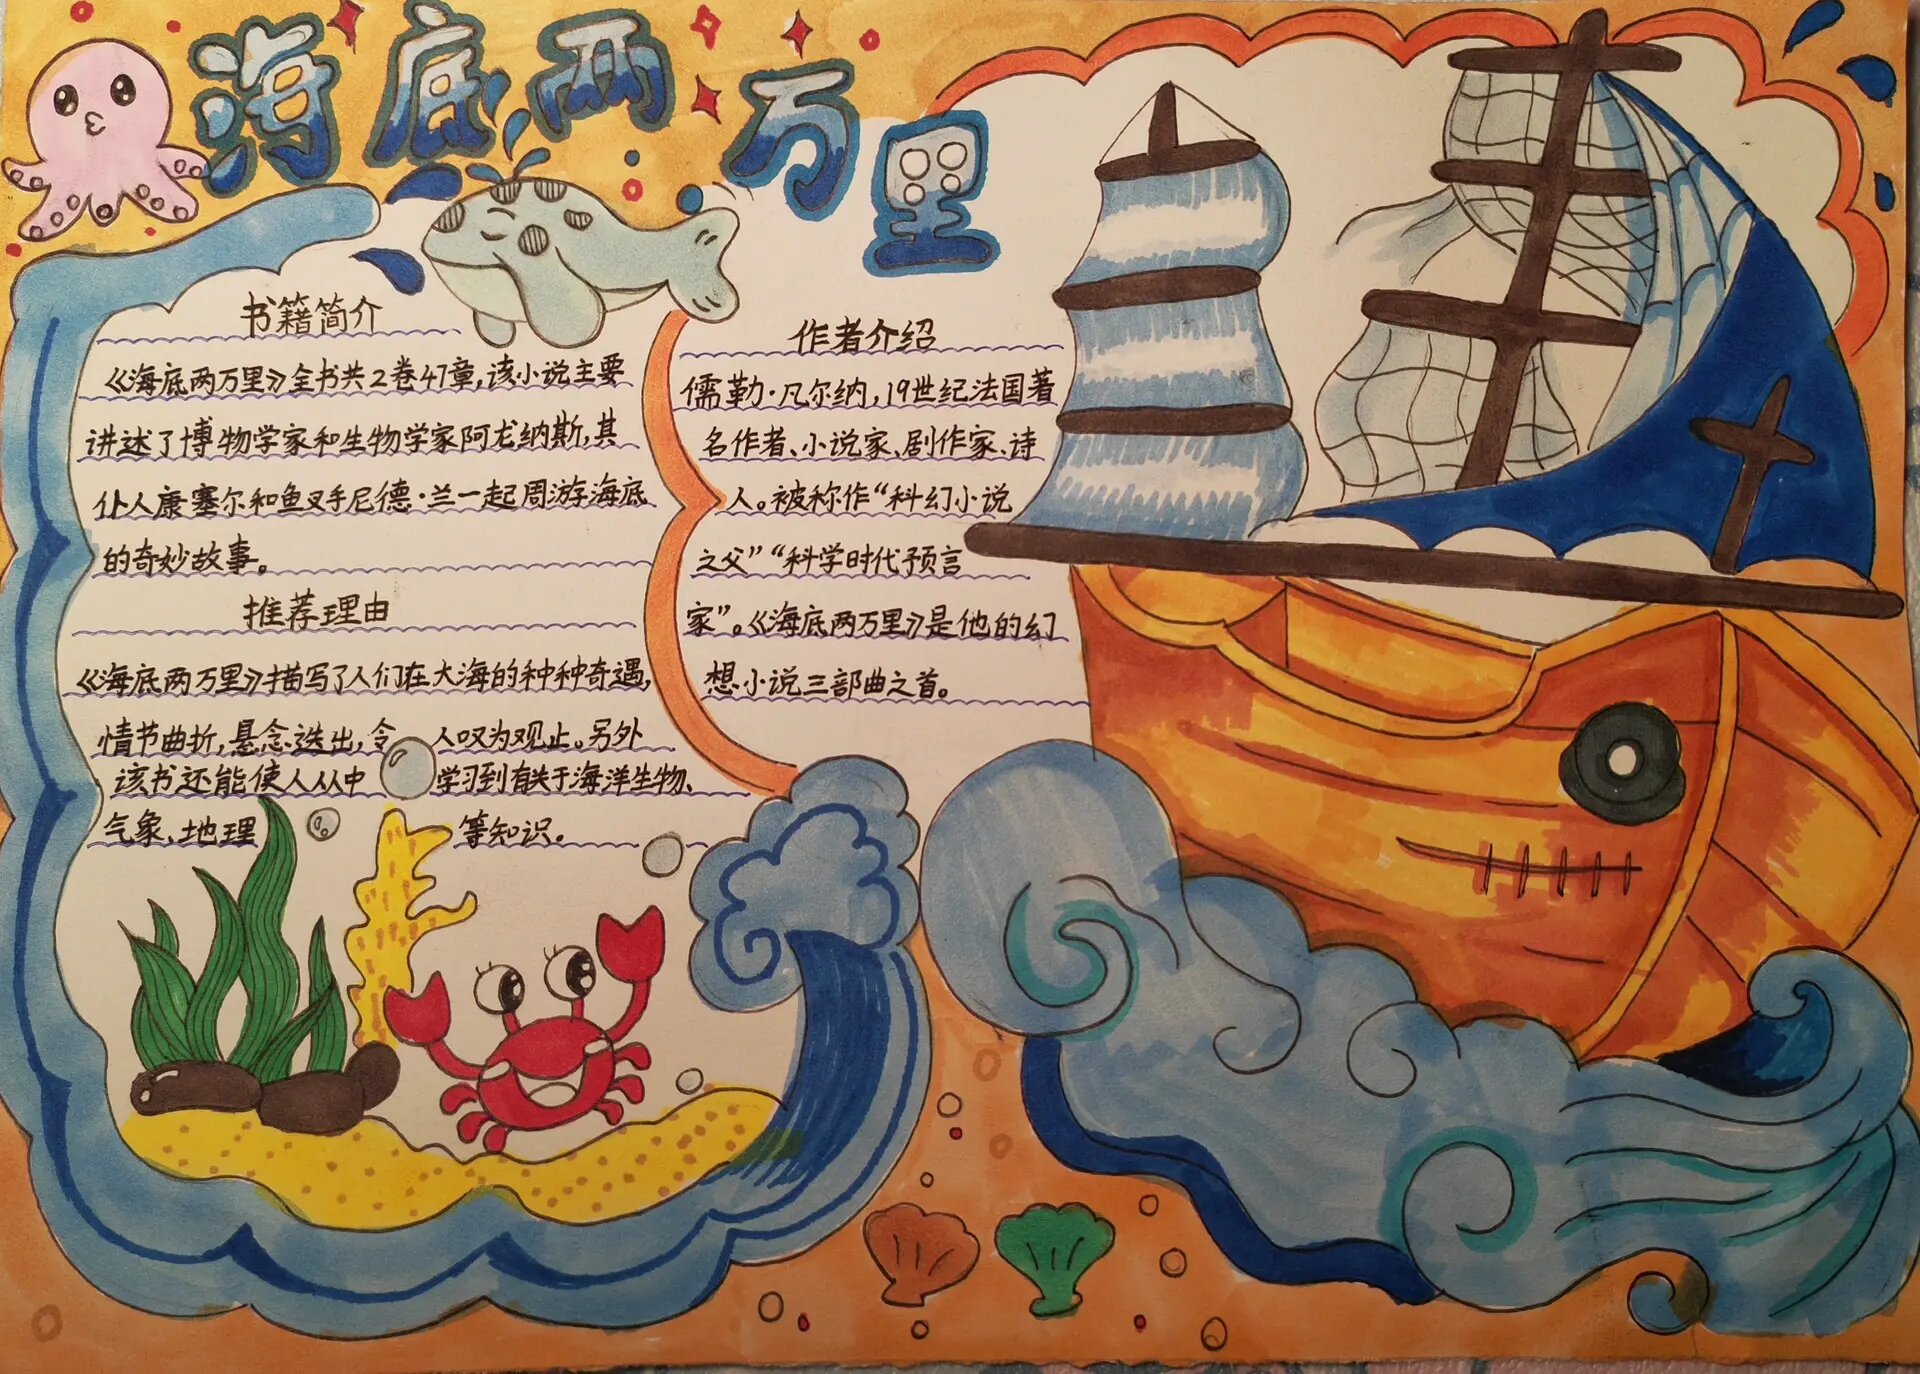 海底两万里
书籍简介
《海底两万里》全书共2卷47章,该小说主要
讲述了博物学家和生物学家阿龙纳斯,其
仆人康塞尔和鱼叉手尼德·兰一起周游海底
的奇妙故事。
推荐理由
《海底两万里》描写了人们在大海的种种奇遇,
情节曲折,悬念迭出,令人叹为观止。另外
该书还能使人从中学习到有关于海洋生物、
气象、地理等知识。
作者介绍
儒勒·凡尔纳,19世纪法国著
名作者、小说家、剧作家、诗
人。被称作“科幻小说
之父”“科学时代预言
家”。《海底两万里》是他的幻
想小说三部曲之首。